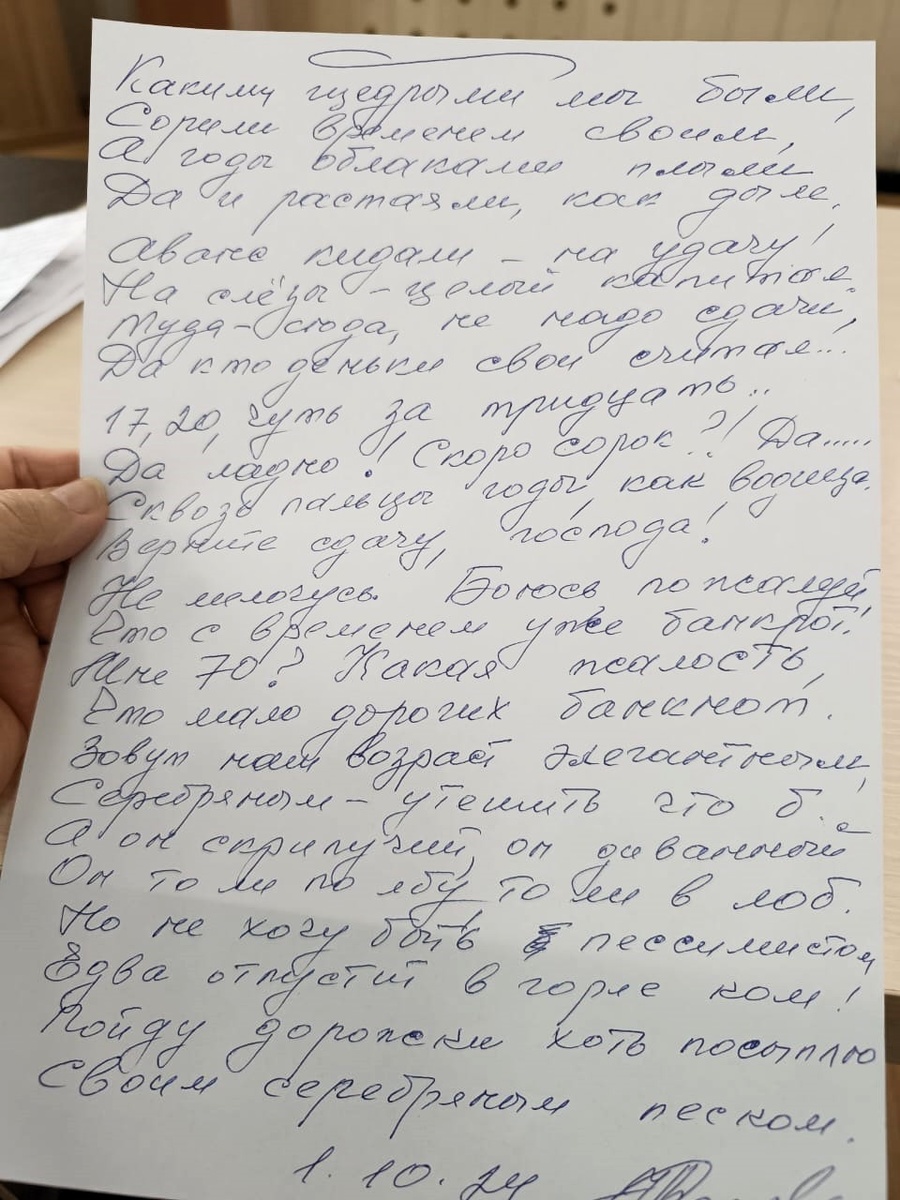 Какими щедрыми мы были,
Сорили временем своим,
А годы облаками плыли
Да и растаяли, как дым.
Аванс кидали - на удачу!
На слёзы - целый капитал.
Туда-сюда, не надо сдачи,
Да кто деньки свои считал...
17, 20, чуть за тридцать..
Да ладно! Скоро сорок?! Да.....
Сквозь пальцы годы, как водица.
Верните сдачу, господа!
Не мелочусь. Боюсь пожалуй,
Что с временем уже банкрот!
Мне 70? Какая жалость,
Что мало дорогих банкнот.
Зовут наш возраст элегантным,
Серебряным - утешить что б.
А он скрипучий, он диванный
Он то ли по лбу, то ли в лоб.
Но не хочу быть пессимистом
Едва отпустит в горле ком!
Пойду дорожки хоть посыплю
Своим серебряным песком.
1.10.24